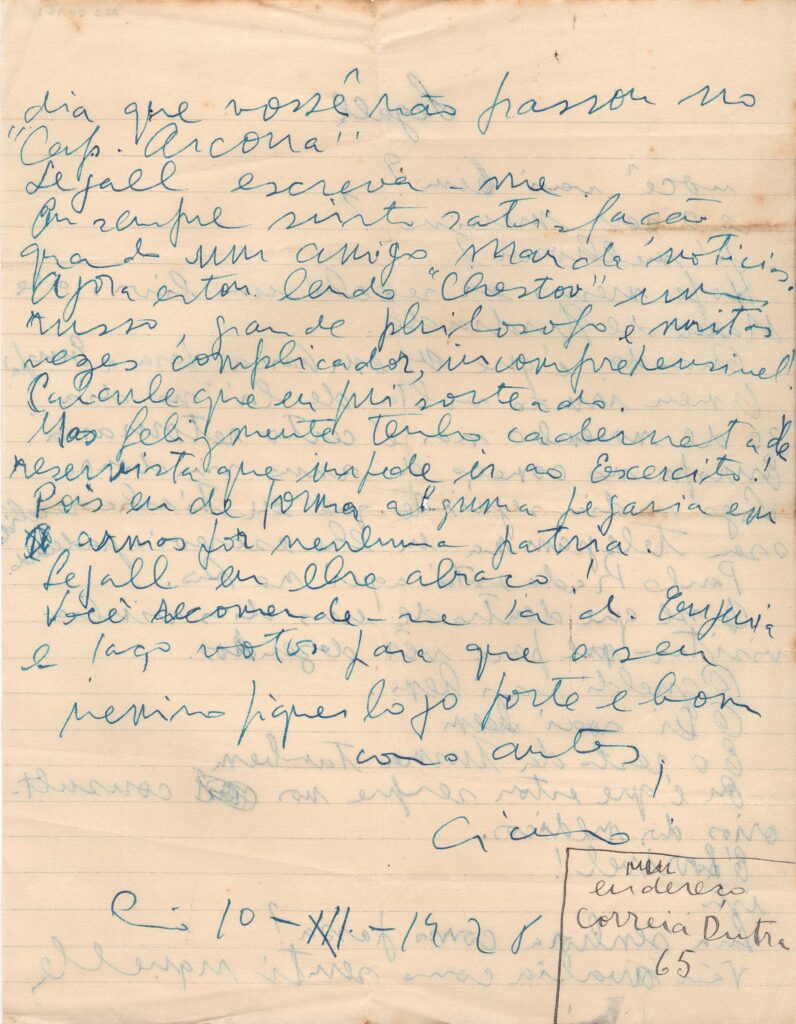 dia que vossê não passou no
"Cap. Arcona"
Legall escreva-me.
Eu sempre sinto satisfação
quando um amigo manda noticias.
Agora estou lendo "Chestov" um
russo, grande philosofo e muitas
vezes complicador, incomprehensivel!
Calcule que eu fui sorteado.
Mas felizmente tenho caderneta de
reservista que impede ir ao Exercito!
Pois eu de forma alguma pegaria em
armas por nenhuma patria.
Legall eu lhe abraço!
Você recomende-me la d. Eugenia
e faço votos para que o seu
menino fique logo forte e bom
como antes,
Cicero
Rio 10-XII-1928
meu
endereço
Correia Dutra
65